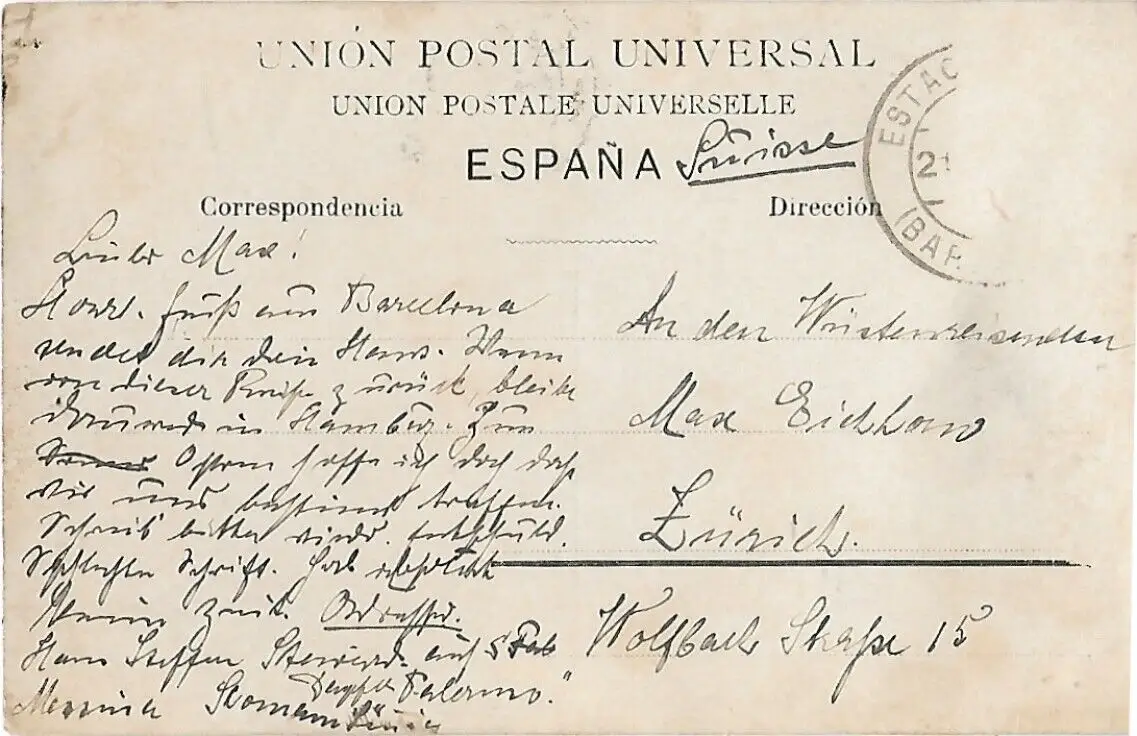 UNIÓN POSTAL UNIVERSAL
UNION POSTALE UNIVERSELLE
ESPAÑA Suisse
Correspondencia
Dirección
ESTAC
21
(BAR
Lieber Max!
Gruß aus Barcelona
sendet dir dein Hans. Wenn
von dieser Reise zurück, bleibe
in Hamburg. Zum
Ostern hoffe ich doch daß
wir uns bestimmt treffen.
Schreib bitte wieder. Entschuld.
Schlechte Schrift. Hab absolut
keine Zeit. Adresse.
Hans Steffen Steward. auf
Dampfer "Palermo."
Messina
An den Wüstenreisenden
Max Eichhorn
Zürich.
Wolfbach Straße 15